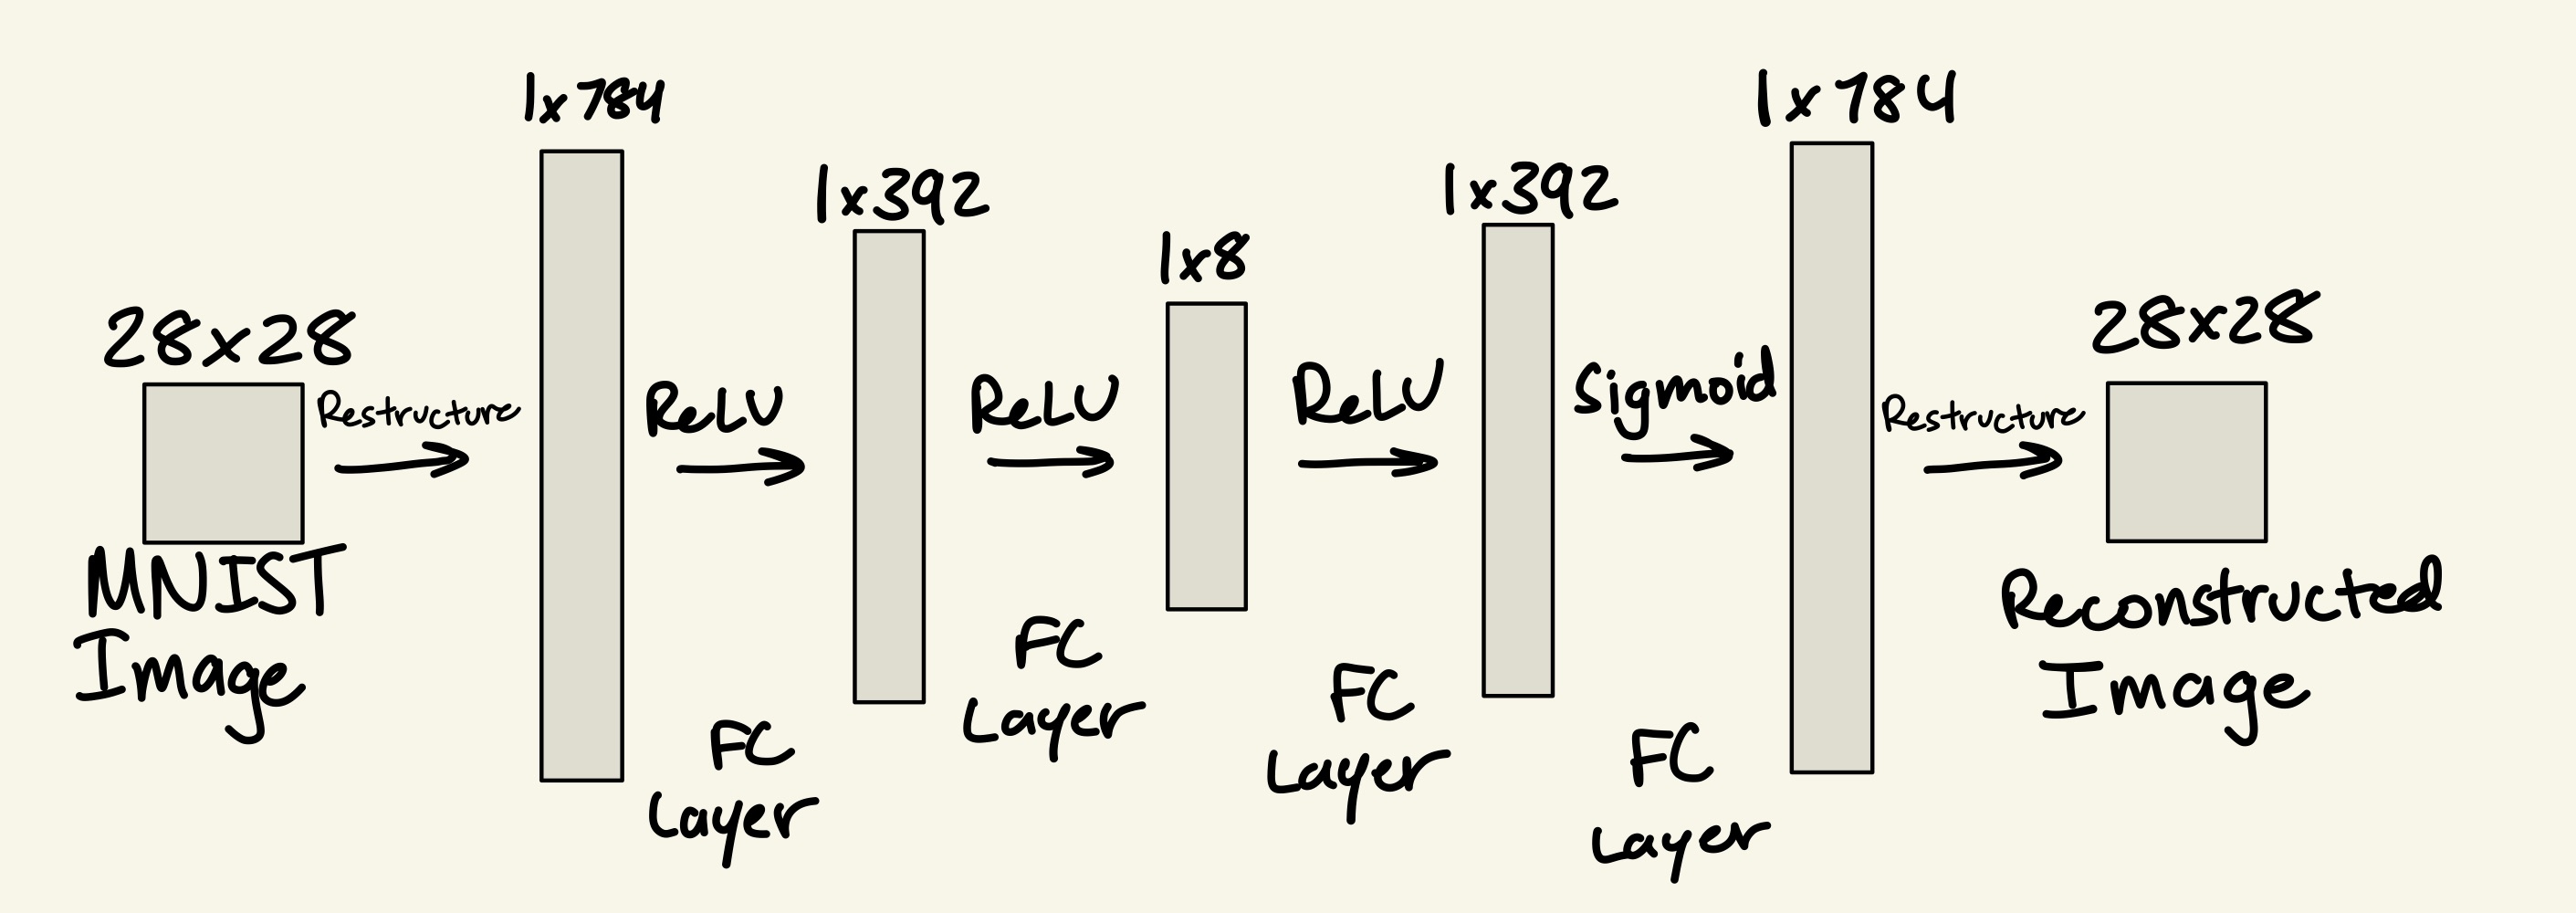 28x28
MNIST
Image
Restructure
1x784
ReLU
FC
Layer
1x392
ReLU
FC
Layer
1x8
ReLU
FC
Layer
1x392
Sigmoid
FC
Layer
1x784
Restructure
28x28
Reconstructed
Image